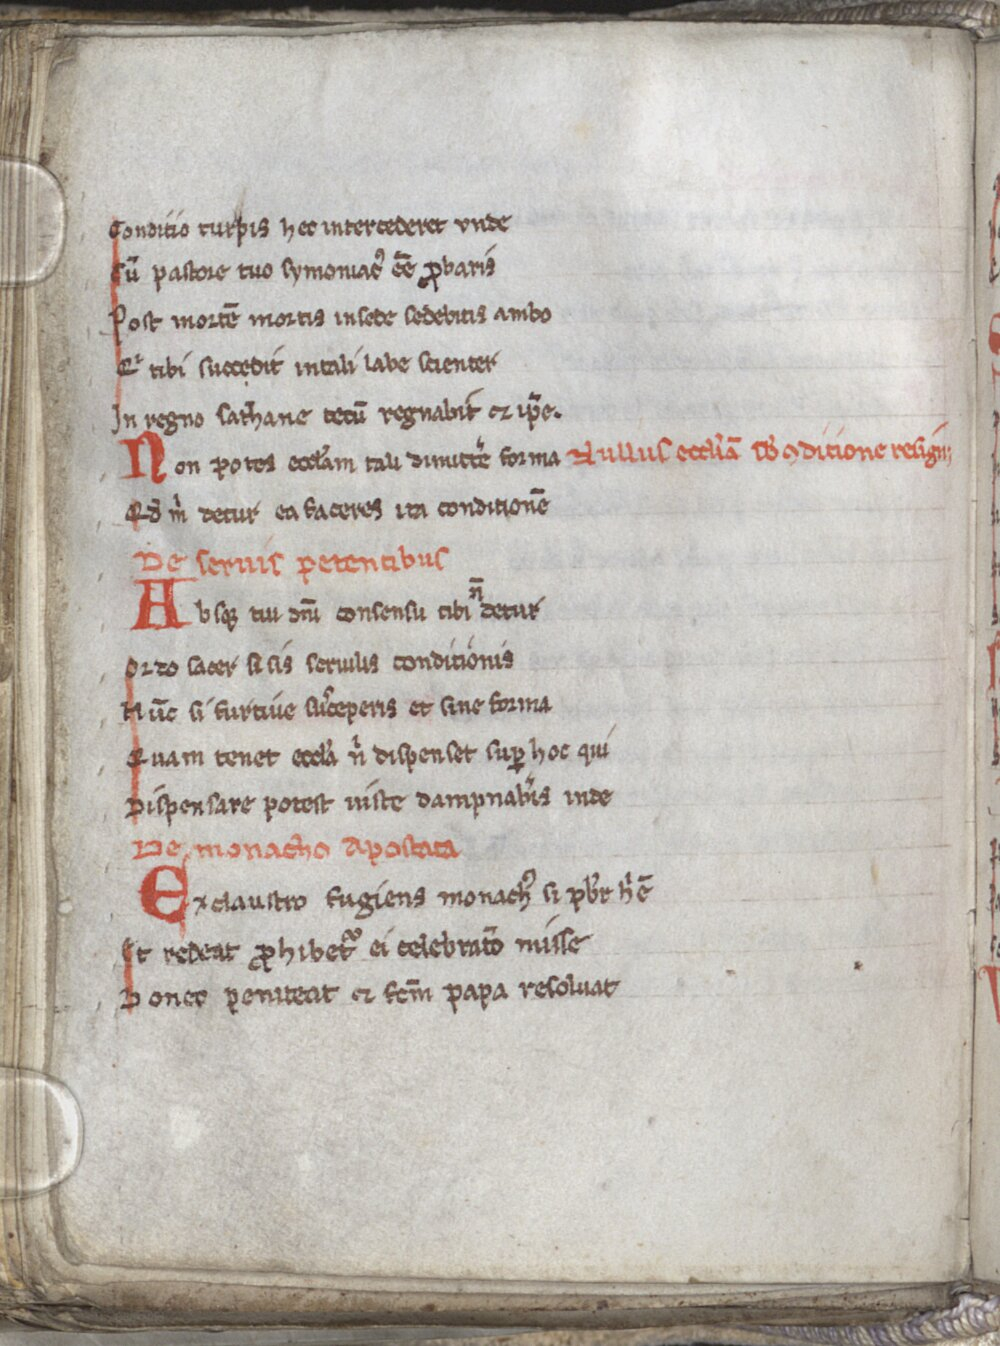 Conditio turpis hec intercederet vnde
Cū pastore tuo symoniacꝰ eē ꝓbaris
Post mortē mortis in sede sedebitis ambo
Qͥ tibi succedit in tali labe scienter
In regno sathane tecū regnabit et ip̄e.
Non potes eccl̓am tali dimitt̓e forma Nullus eccl̓iā sb̓ ꝯditione
Qd̓ m̓ detur ea faceres ita conditionē
De seruis petentibus
Absqꝫ tui dn̄i consensu tibi n̄ detur
Ordo sacer si sis seruilis conditionis
Nūc si furtiue susceperis et sine forma
Quam tenet eccl̓a n̓ dispenset suꝑ hoc qui
Dispensare potest iuste dampnab̓is inde
De monacho Apostata
Ex claustro fugiens monachꝰ si pb̓r h̓ē
Et redeat ꝓhibetᷣ ei celebratō misse
Donec peniteat et scm̄ papa resoluat